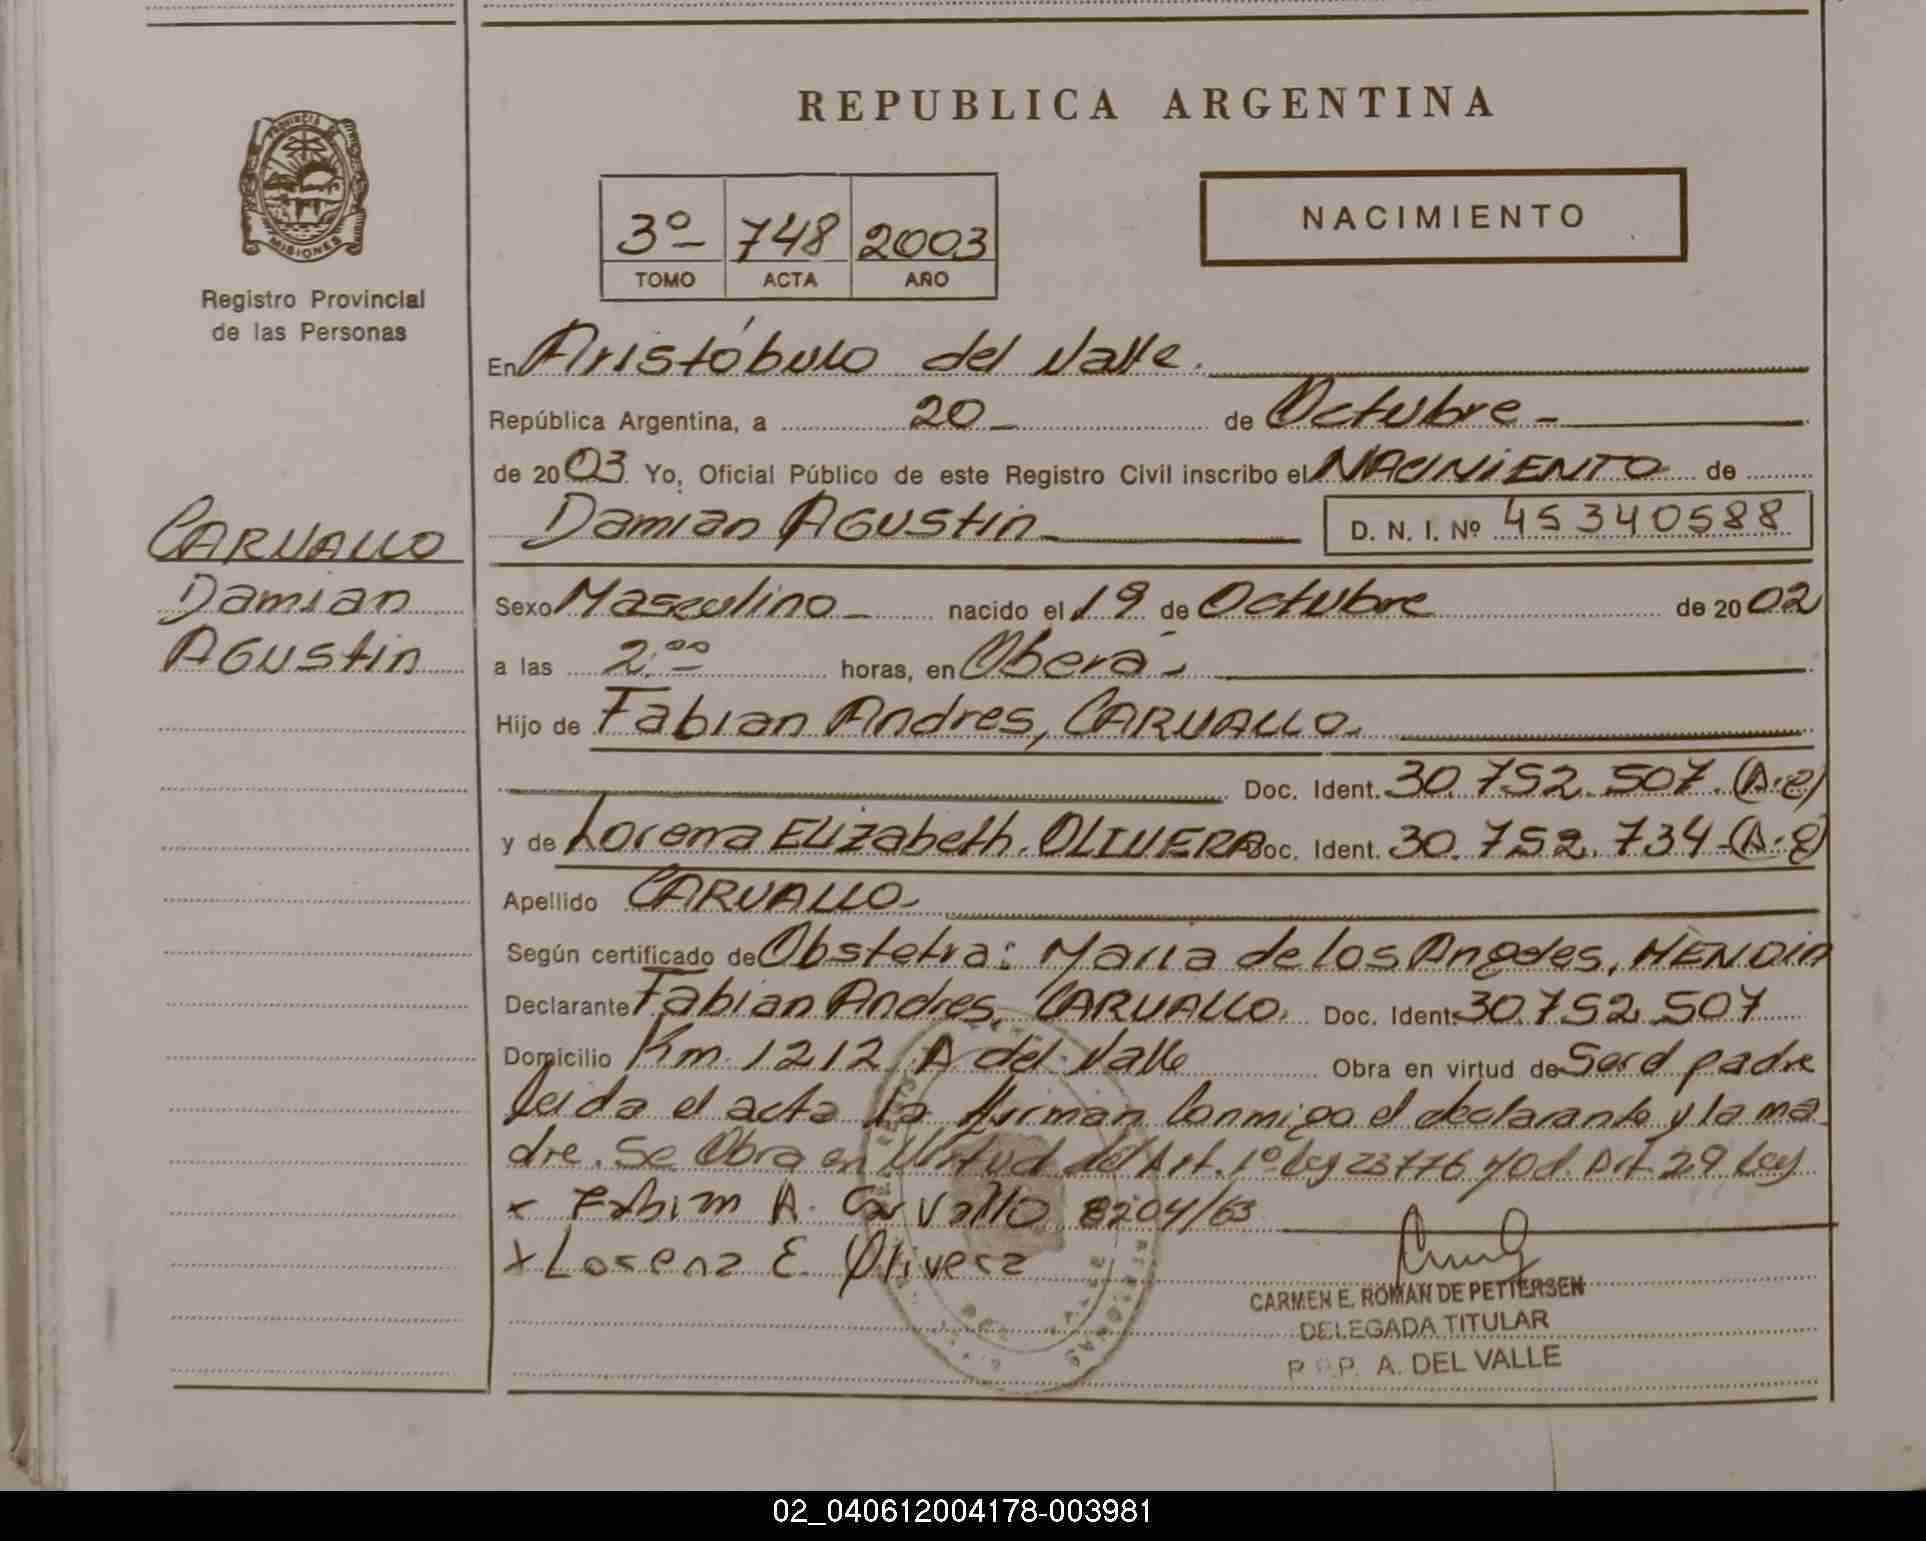 REPUBLICA ARGENTINA
PROVINCIA DE
MISIONES
Registro Provincial
de las Personas
3º 748 2003
TOMO ACTA AÑO
NACIMIENTO
En Aristóbulo del Valle.
República Argentina, a 20 de Octubre
de 2003. Yo, Oficial Público de este Registro Civil inscribo el NACIMIENTO de
Damian AGUSTIN D. N. I. Nº 45340588
CARVALLO
Damian
AGUSTIN
Sexo Masculino nacido el 19 de Octubre de 2002
a las 2.00 horas, en Oberá.
Hijo de Fabian Andres, CARVALLO.
Doc. Ident. 30.752.507.
y de Lorena ELIZabeth. OLIVERA Doc. Ident. 30.752.734
Apellido CARVALLO
Según certificado de Obstetra: Maria de los Angeles,
Declarante Fabian Andres, CARVALLO. Doc. Ident. 30.752.507
Domicilio Km. 1212 A del Valle Obra en virtud de Ser el padre
leida el acta la firman Conmigo el declarante y la ma
dre. Se Obra en Virtud del Art. 1º Ley 23776 Art. 29 Ley
x Fabian A. Carvallo 8204/63
x Lorena E. Olivera
CARMEN E. ROMAN DE PETTERSEN
DELEGADA TITULAR
A. DEL VALLE
02_040612004178-003981